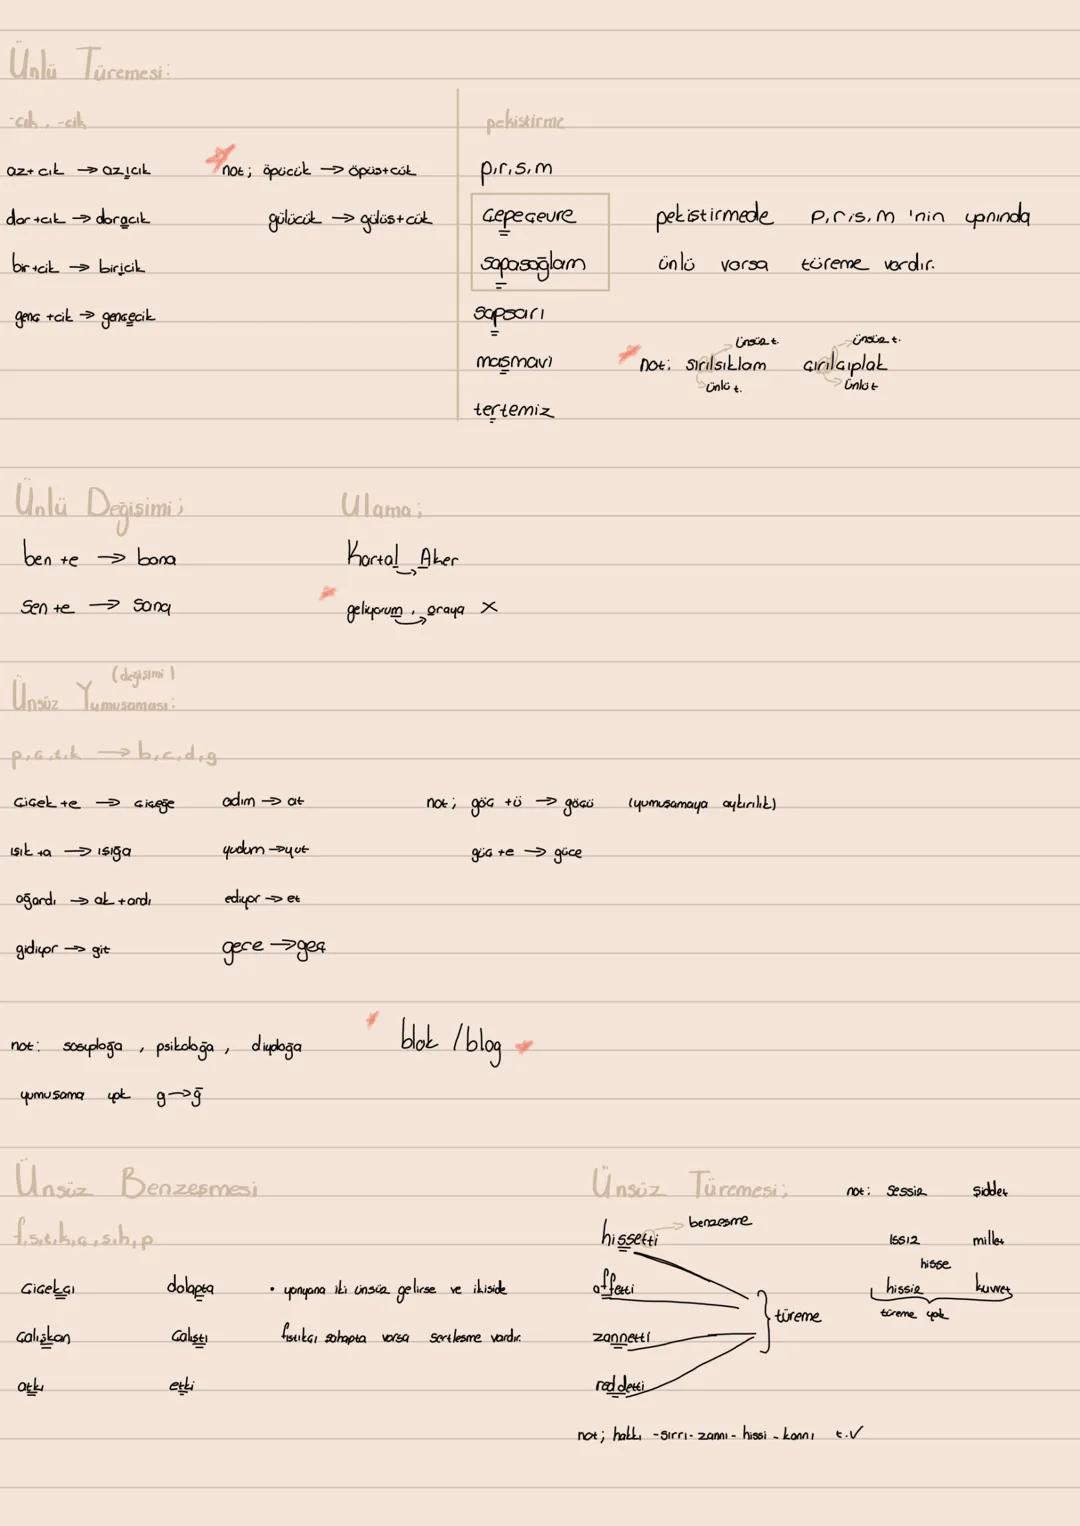 Ünlü Türemesi:
-cık, -cik
az+cık → azıcık
dar+cık → daracık
bir+cik → biricik
genç +cik → gencecik
not; öpücük → öpüş+cük
gülücük → gülüş+cük
pekiştirme
p,r,s,m
Çepeçevre
sapasağlam
sapsarı
masmavi
tertemiz
pekiştirmede p,r,s,m 'nin yanında
ünlü varsa türeme vardır.
ünsüz t. ünsüz t.
not: sırılsıklam çırılçıplak
ünlü t. ünlü t
Ünlü Değişimi;
ben +e → bana
sen +e → sana
Ulama;
Kartal Aker
geliyorum, oraya X
(değişimi)
Ünsüz Yumuşaması:
p,ç,t,k → b,c,d,g
çiçek +e → çiçeğe
ışık +a → ışığa
ağardı → ak +ardı
gidiyor → git
adım → at
yudum → yut
ediyor → et
gece → geç
not; göç +ü → göçü (yumuşamaya aykırılık)
güç +e → güce
not: sosyoloğa, psikoloğa, diyaloğa
yumuşama yok g→ğ
blok / blog
Ünsüz Benzeşmesi
f,s,t,k,ç,ş,h,p
Çiçekçi
Çalışkan
atkı
dolapta
Çalıştı
etki
• yanyana iki ünsüz gelirse ve ikiside
fıstıkçı şahapta varsa sertleşme vardır.
Ünsüz Türemesi;
hissetti → benzeşme
affetti
zannetti
reddetti
türeme
not: sessiz şiddet
ıssız millet
hisse
hissiz kuvvet
türeme yok
not; hakkı -sırrı- zannı - hissi - kannı t.✓